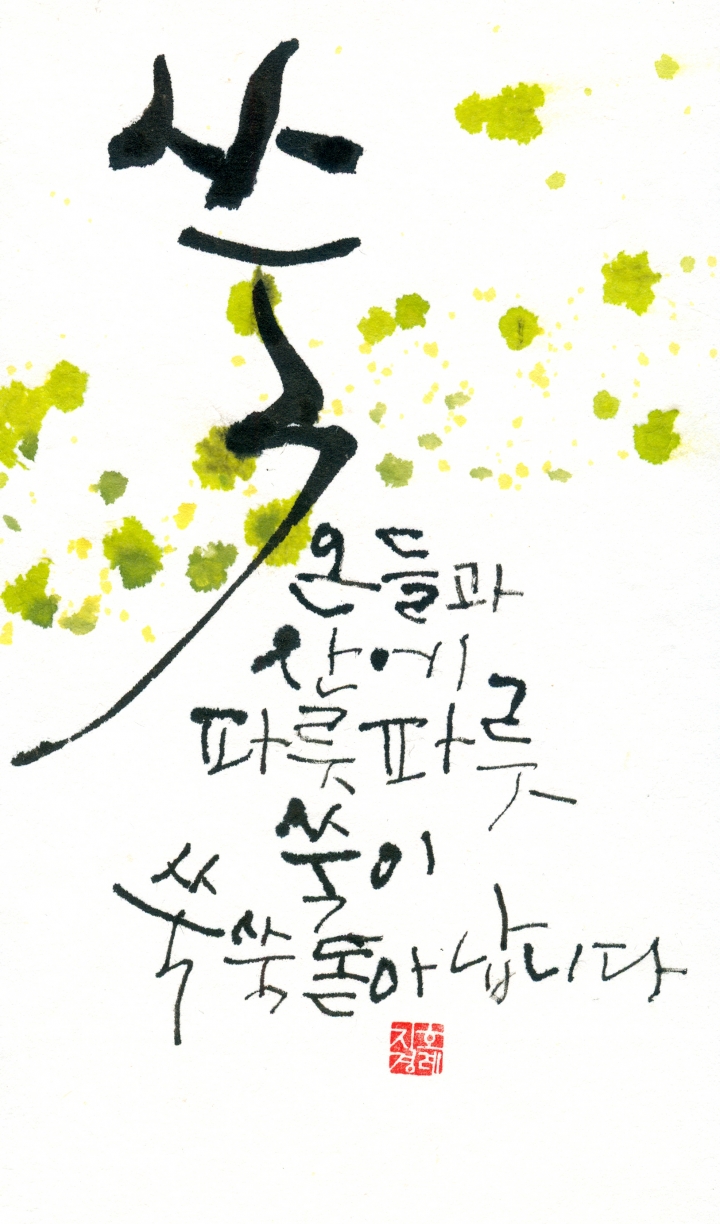 쑥
온들과
산에
파릇파릇
쑥이
쑥쑥돋아납니다
지호
경례